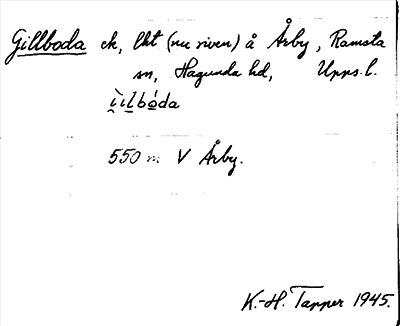 Gillboda ck, lht (nu riven) å Årby, Ramsta
sn, Hagunda hd, Upps. l.
ì̯ìlbóda
550 m V Årby.
K.-H. Tapper 1945.